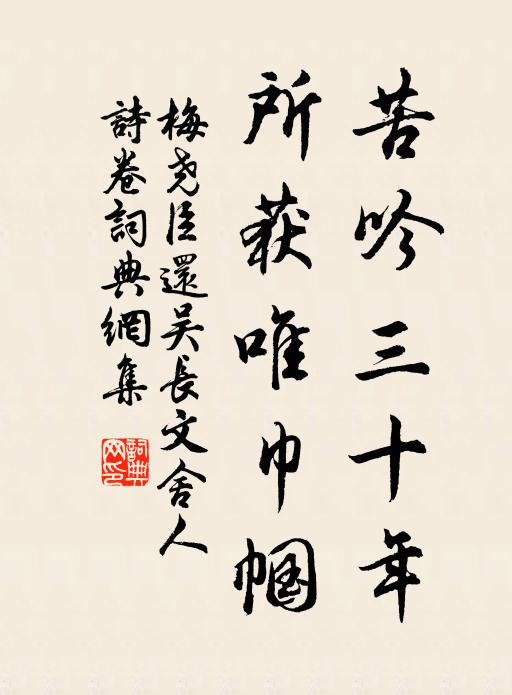 苦吟三十年
所获唯巾帼
梅尧臣還吴長文舍人
詩卷詞典網集
詞典网印